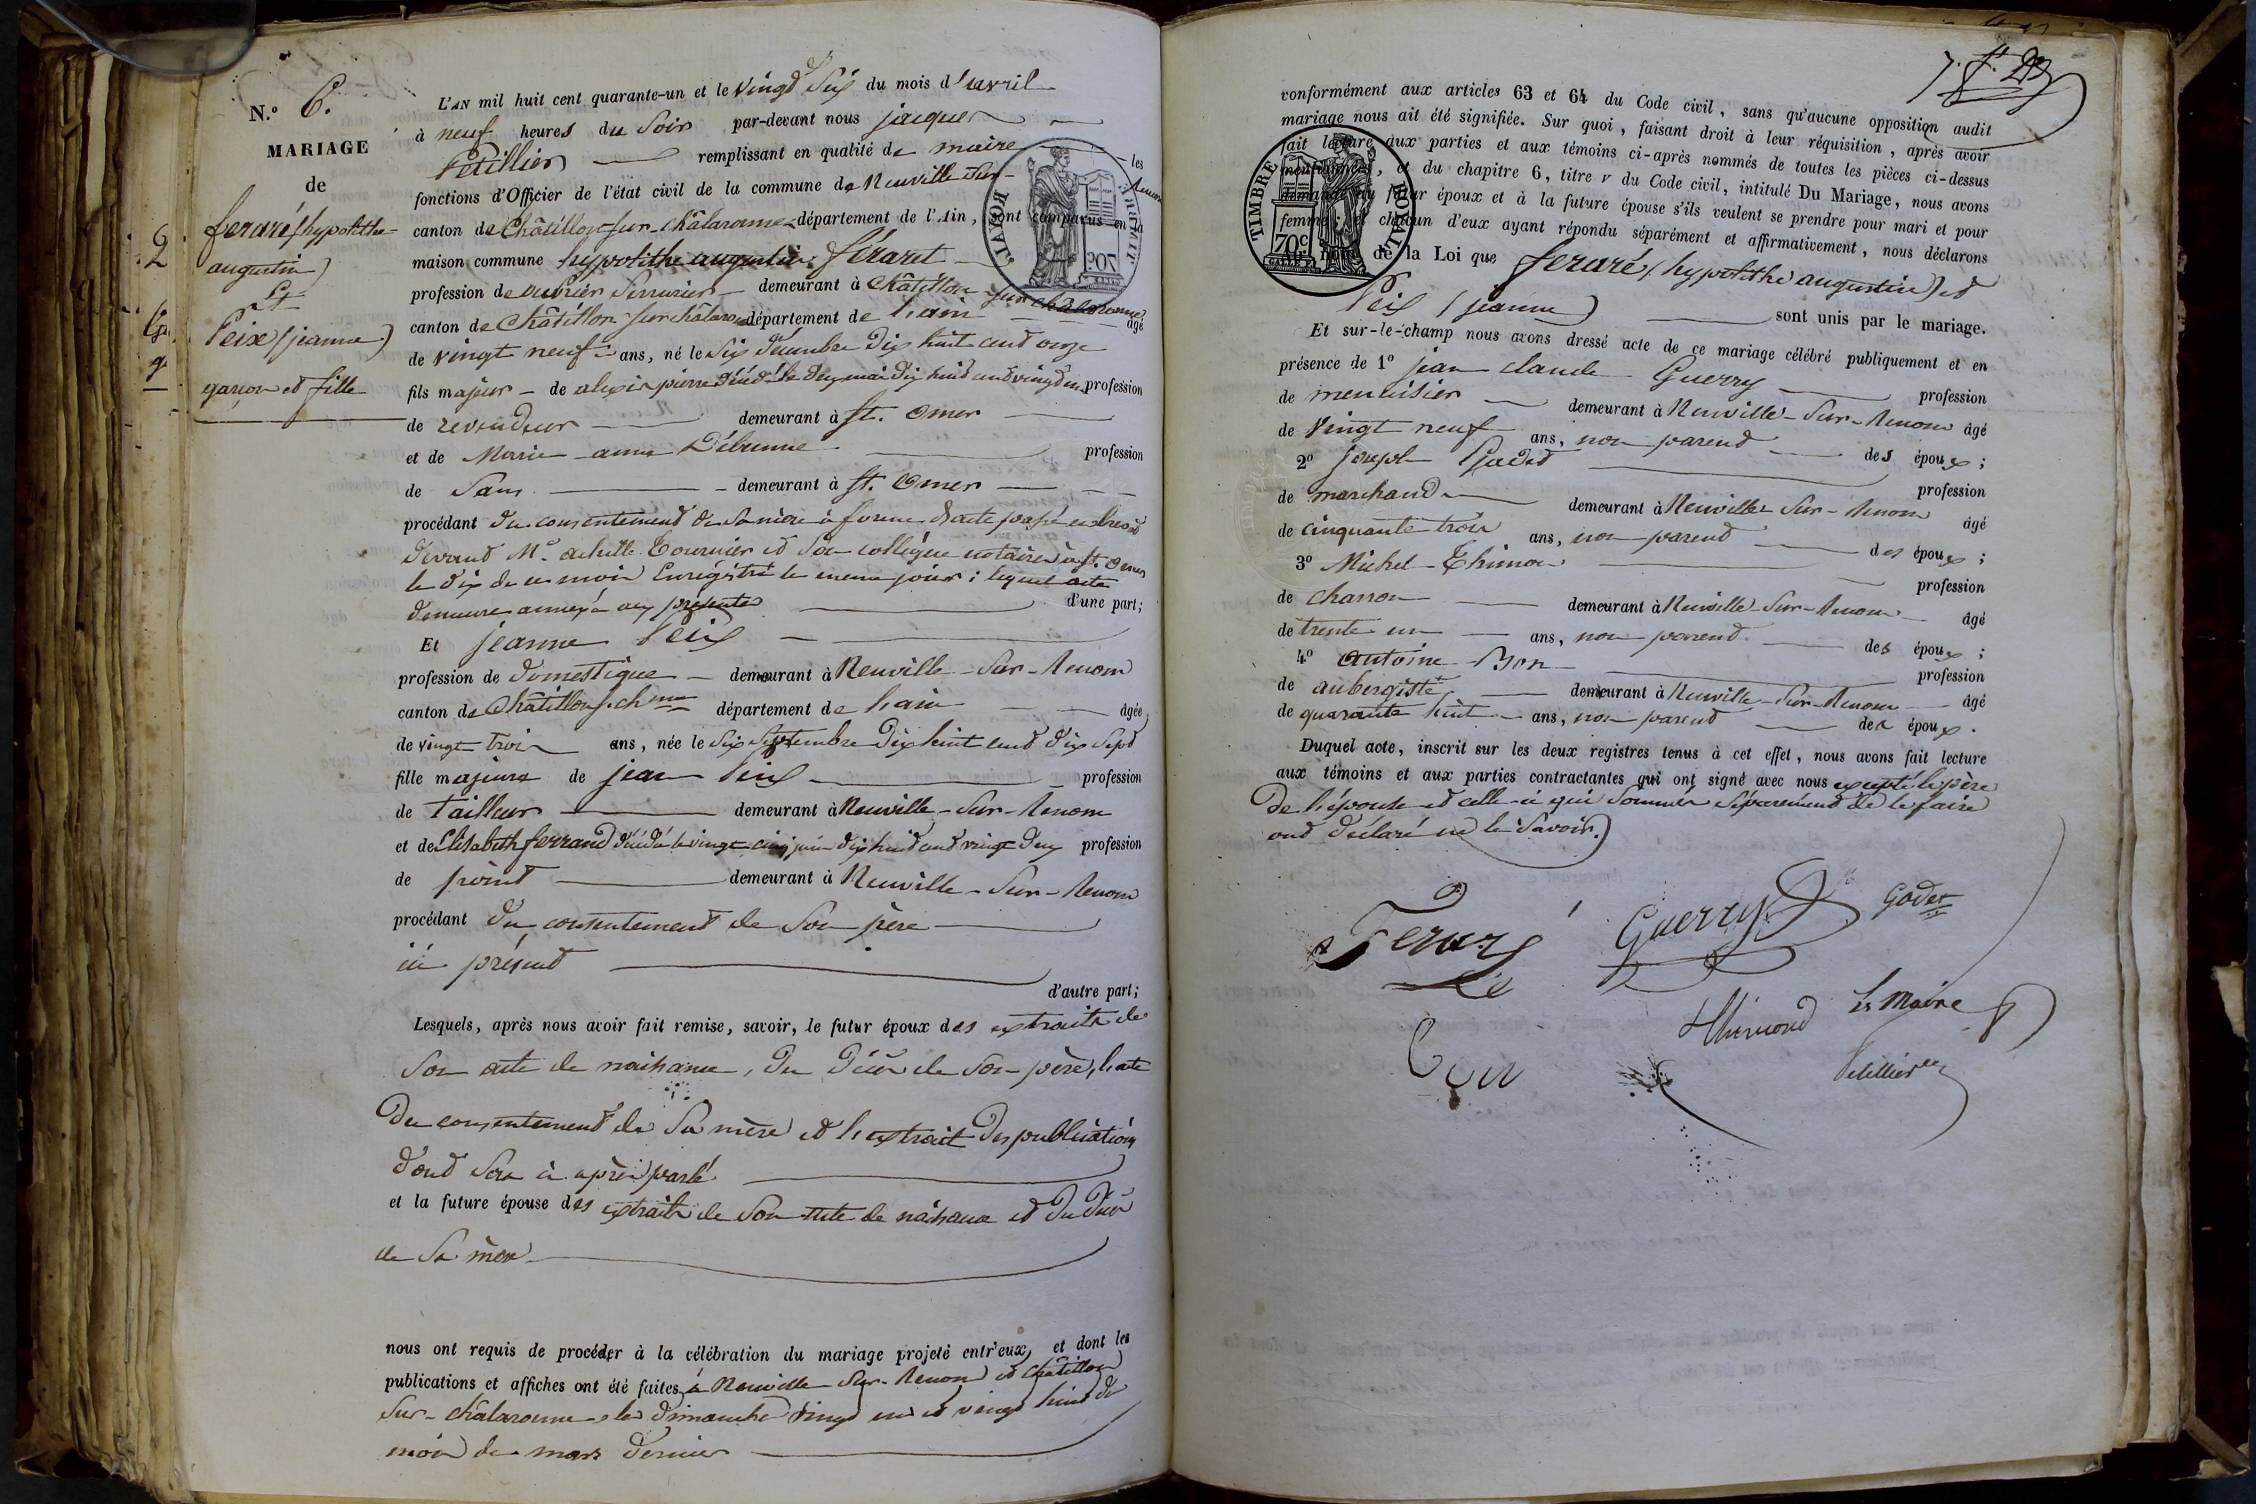 N.º 6.
MARIAGE
de
feraré (hypolithe
augustin)
Et
Peix (jeanne)
garçon et fille
L'AN mil huit cent quarante-un et le vingt Six du mois d'avril
à neuf heures du Soir par-devant nous jacques
Petillier remplissant en qualité de maire les
fonctions d'Officier de l'état civil de la commune de Neuville Sur-Renom
canton de Châtillon sur chalaronne département de l'Ain, sont comparus en la
maison commune hypolithe augustin féraret
profession de ouvrier Serrurier demeurant à Châtillon sur chalaronne
canton de Châtillon sur châlaronne département de l'ain âgé
de vingt neuf ans, né le Six décembre dix huit cent onze
fils majeur de alexis pierre décédé le dix mai dix huit cent vingt un profession
de revendeur demeurant à St. Omer
et de Marie anne Débrienne profession
de Sans demeurant à St. Omer
procédant du consentement de Sa mère à forme d'acte passé en brevet
devant Me. achille Tournier et Son collègue notaires à St. Omer
le dix de ce mois Enregistré le meme jour; lequel acte
demeure annexé aux présentes d'une part;
Et jeanne Peix
profession de domestique demeurant à Neuville Sur Renom
canton de Châtillon s. chnne département de l'ain âgée
de vingt trois ans, née le Six Septembre dix huit cent dix Sept
fille majeure de jean Peix profession
de Tailleur demeurant à Neuville-Sur-Renom
et de Elisabeth ferrand décédée le vingt cinq juin dix huit cent vingt deux profession
de point demeurant à Neuville-Sur-Renom
procédant du consentement de Son père
ici présent
d'autre part;
Lesquels, après nous avoir fait remise, savoir, le futur époux des extraits de
Son acte de naissance, du décès de Son père, l'acte
du consentement de Sa mère et l'extrait des publications
dont Sera ci après parlé
et la future épouse des extraits de Son acte de naissance et du décès
de Sa mère
nous ont requis de procéder à la célébration du mariage projeté entr'eux, et dont les
publications et affiches ont été faites à Neuville Sur-Renom et Châtillon
Sur-châlaronne, les dimanche vingt un et vingt huit du
mois de mars dernier
conformément aux articles 63 et 64 du Code civil, sans qu'aucune opposition audit
mariage nous ait été signifiée. Sur quoi, faisant droit à leur réquisition, après avoir
fait lecture aux parties et aux témoins ci-après nommés de toutes les pièces ci-dessus
mentionnées, et du chapitre 6, titre v du Code civil, intitulé Du Mariage, nous avons
demandé au futur époux et à la future épouse s'ils veulent se prendre pour mari et pour
femme; et chacun d'eux ayant répondu séparément et affirmativement, nous déclarons
au nom de la Loi que feraré (hypolithe augustin) et
Peix (jeanne) sont unis par le mariage.
Et sur-le-champ nous avons dressé acte de ce mariage célébré publiquement et en
présence de 1º jean claude Guerry profession
de menuisier demeurant à Neuville-Sur-Renom âgé
de vingt neuf ans, non parent des époux;
2º Joseph Godet profession
de marchand demeurant à Neuville Sur-Renom âgé
de cinquante trois ans, non parent des époux;
3º Michel Thimon profession
de charron demeurant à Neuville-Sur-Renom âgé
de trente un ans, non parent des époux;
4º antoine Bon profession
de aubergiste demeurant à Neuville-Sur-Renom âgé
de quarante huit ans, non parent des époux.
Duquel acte, inscrit sur les deux registres tenus à cet effet, nous avons fait lecture
aux témoins et aux parties contractantes qui ont signé avec nous excepté le père
de l'épouse et celle-ci qui Sommés séparément de le faire
ont déclaré ne le Savoir.
Feraré Guerry Godet
Thimond Le Maire
Bon Petillier
TIMBRE ROYAL
70c